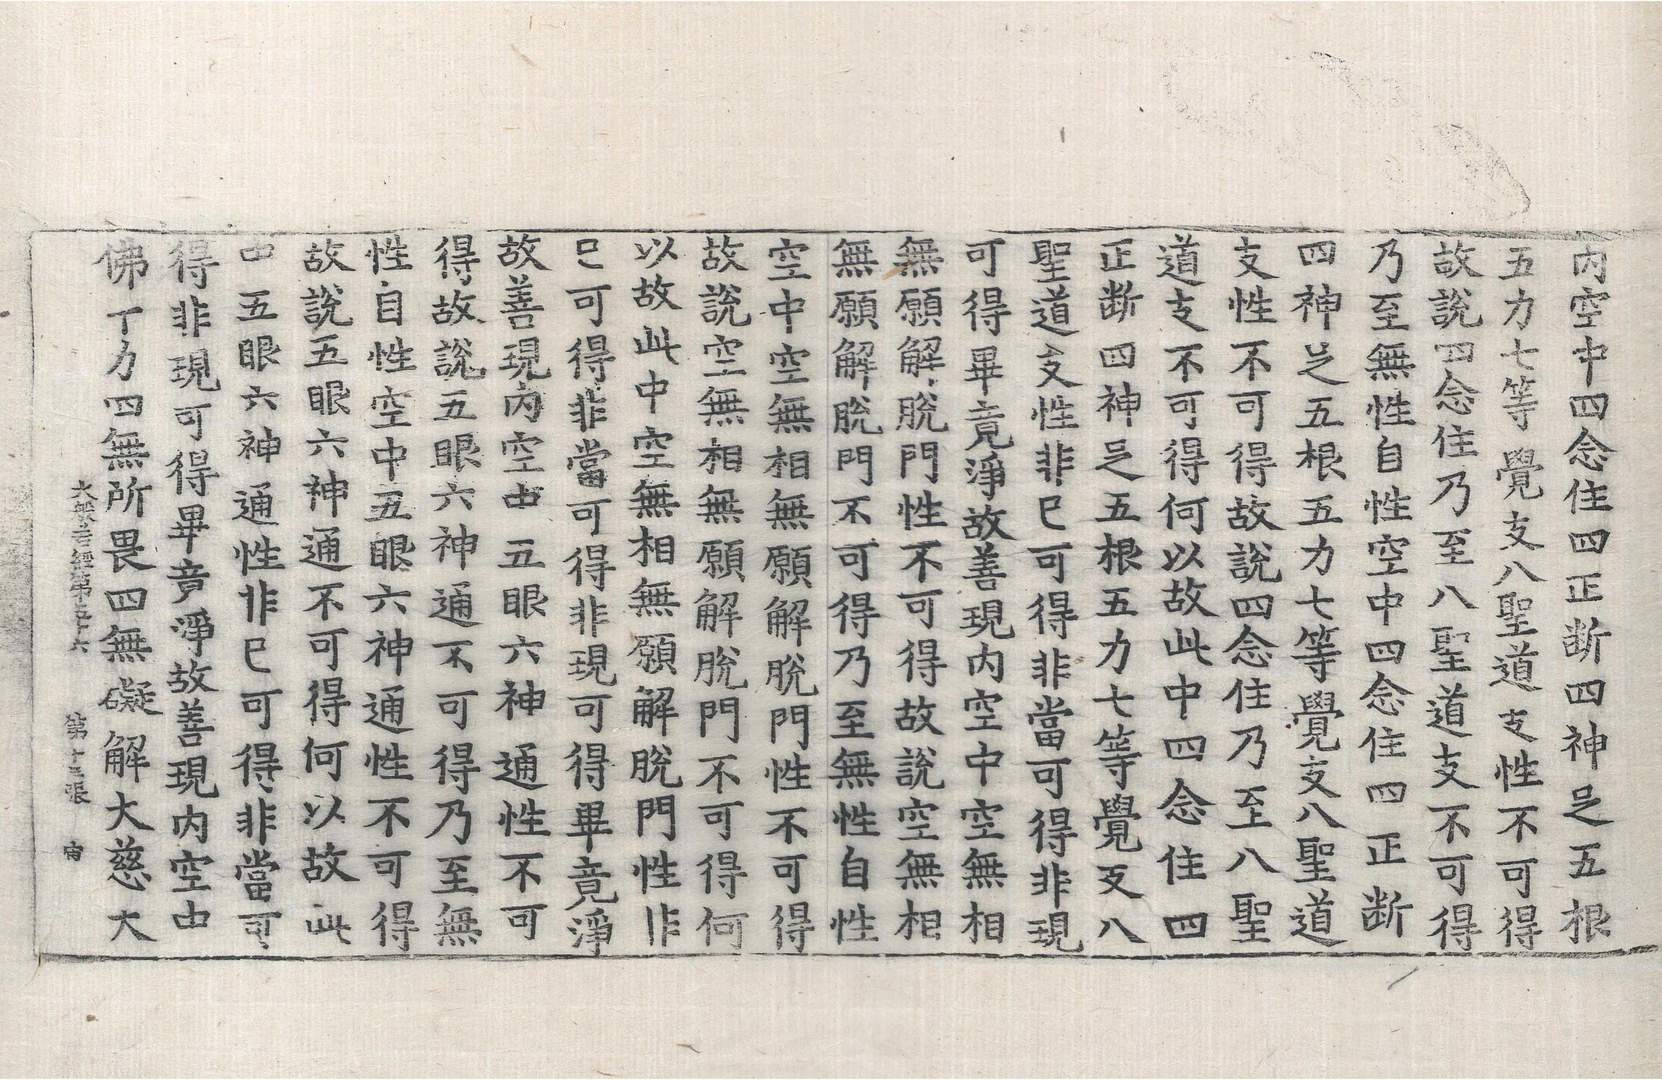 內空中四念住四正断四神足五根
五力七等覺支八聖道支性不可得
故說四念住乃至八聖道支不可得
乃至無性自性空中四念住四正断
四神足五根五力七等覺支八聖道
支性不可得故說四念住乃至八聖
道支不可得何以故此中四念住四
正断四神足五根五力七等覺支八
聖道支性非已可得非當可得非現
可得畢竟淨故善現內空中空無相
無願解脫門性不可得故說空無相
無願解脫門不可得乃至無性自性
空中空無相無願解脫門性不可得
故說空無相無願解脫門不可得何
以故此中空無相無願解脫門性非
已可得非當可得非現可得畢竟淨
故善現內空中五眼六神通性不可
得故說五眼六神通不可得乃至無
性自性空中五眼六神通性不可得
故說五眼六神通不可得何以故此
中五眼六神通性非已可得非當可
得非現可得畢竟淨故善現內空中
佛十力四無所畏四無礙解大慈大
大般若經第五十六 第十三張 宙